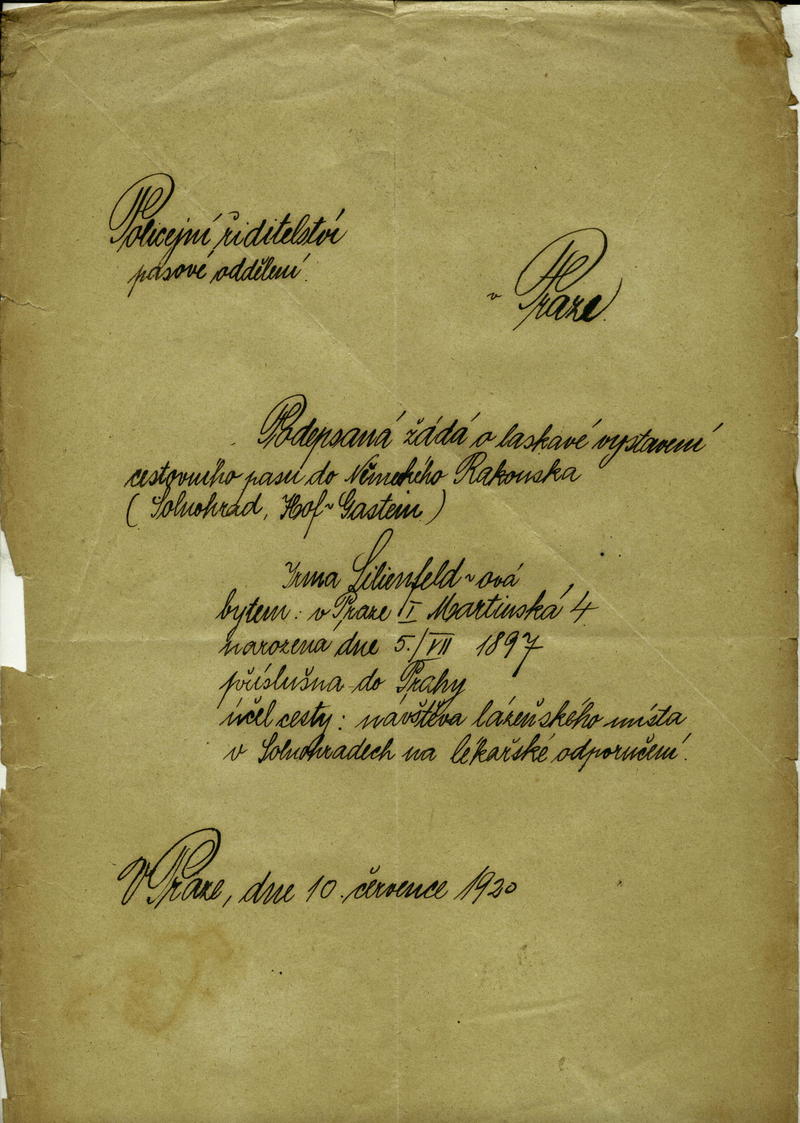 Policejní řiditelství
pasové oddělení.
v Praze.
Podepsaná žádá o laskavé vystavení
cestovního pasu do Německého Rakouska
(Solnohrad, Hof-Gastein)
Irma Lilienfeld-ová
bytem: v Praze I Martinská 4
narozena dne 5./VII 1897
příslušna do Prahy
účel cesty: návštěva lázeňského místa
v Solnohradech na lékařské odporučení.
V Praze, dne 10. července 1920